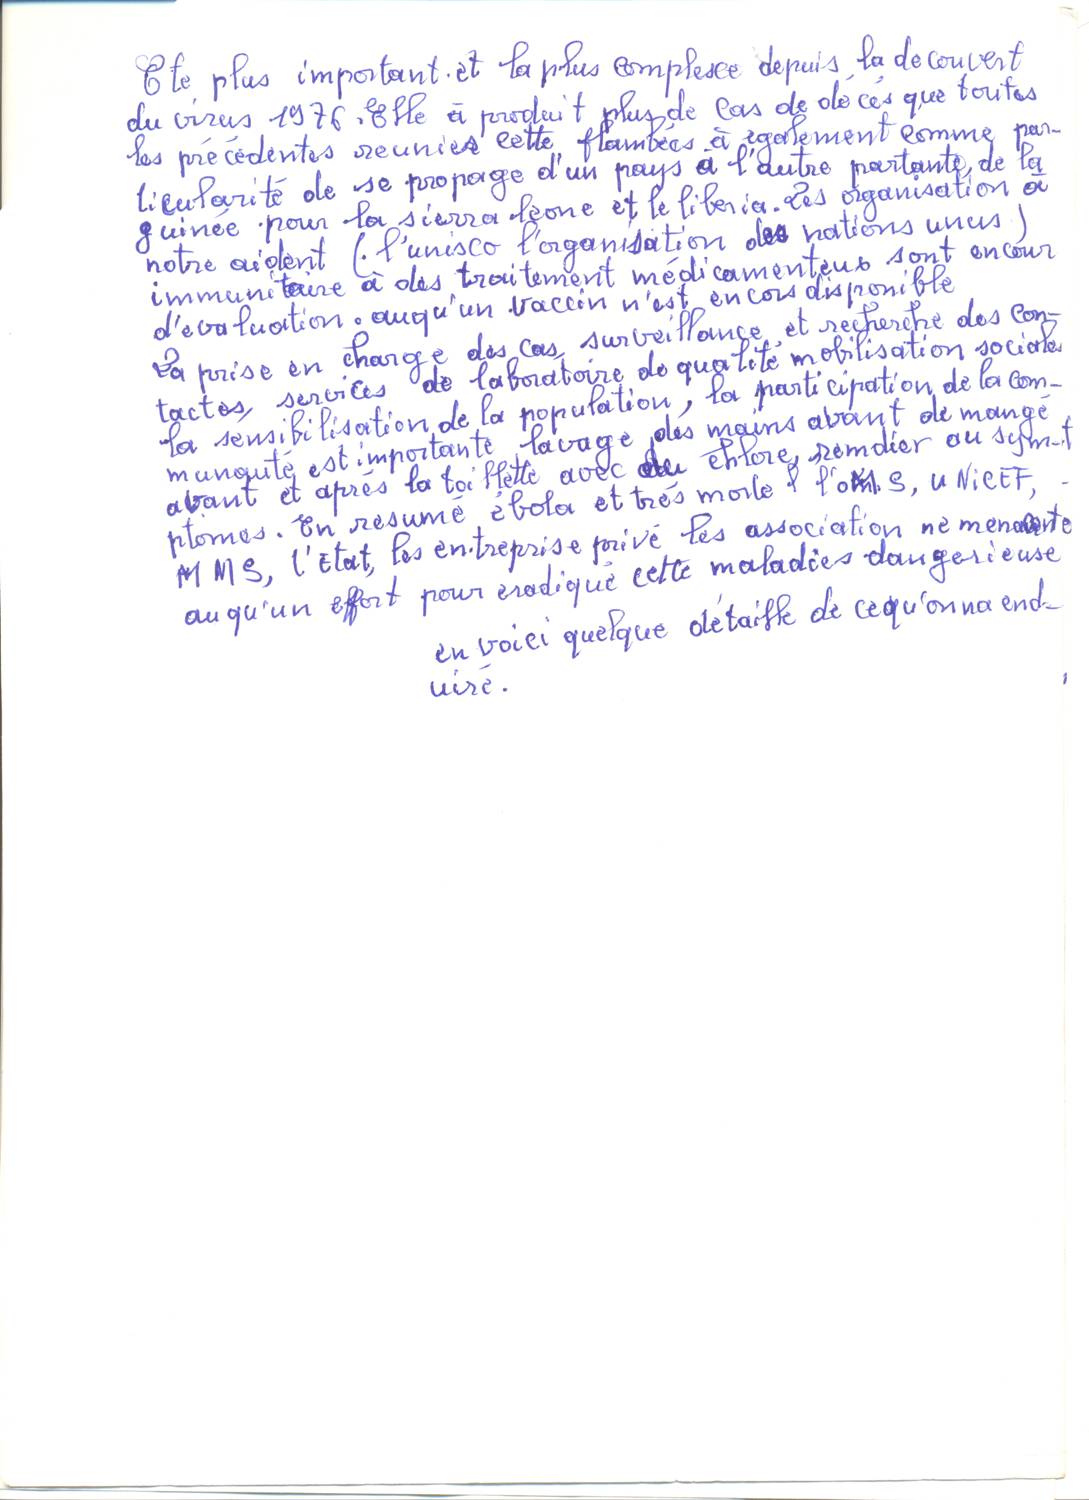 Eté plus important et la plus complesce depuis la decouvert
du virus 1976. Elle à produit plus de cas de décés que toutes
les précédentes reunies cette flambées à également comme par-
ticularité de se propage d'un pays à l'autre partante, de la
guinée pour la sierra leçone et le liberia. Les organisation à
notre aident (l'unisco l'organisation des nations unus)
immunitaire à des traitement médicamenteux sont encour
d'evaluation. auqu'un vaccin n'est encors disponible
La prise en charge des cas, surveillance, et recherche des con-
tactes, services de laboratoire de qualité mobilisation sociale
la sensibilisation de la population, la participation, de la com-
munauté est importante lavage des mains avant de mangé
avant et après la toillette avec du chlore, remdier au sym-t
ptomes. En resumé ébola et trés morle l'oMS, UNiCEF, -
MMS, l'Etat, les entreprise privé les association ne menante
auqu'un effort pour eradiqué cette maladies dangerieuse
en voici quelque détaille de cequ'onna end-
uiré.